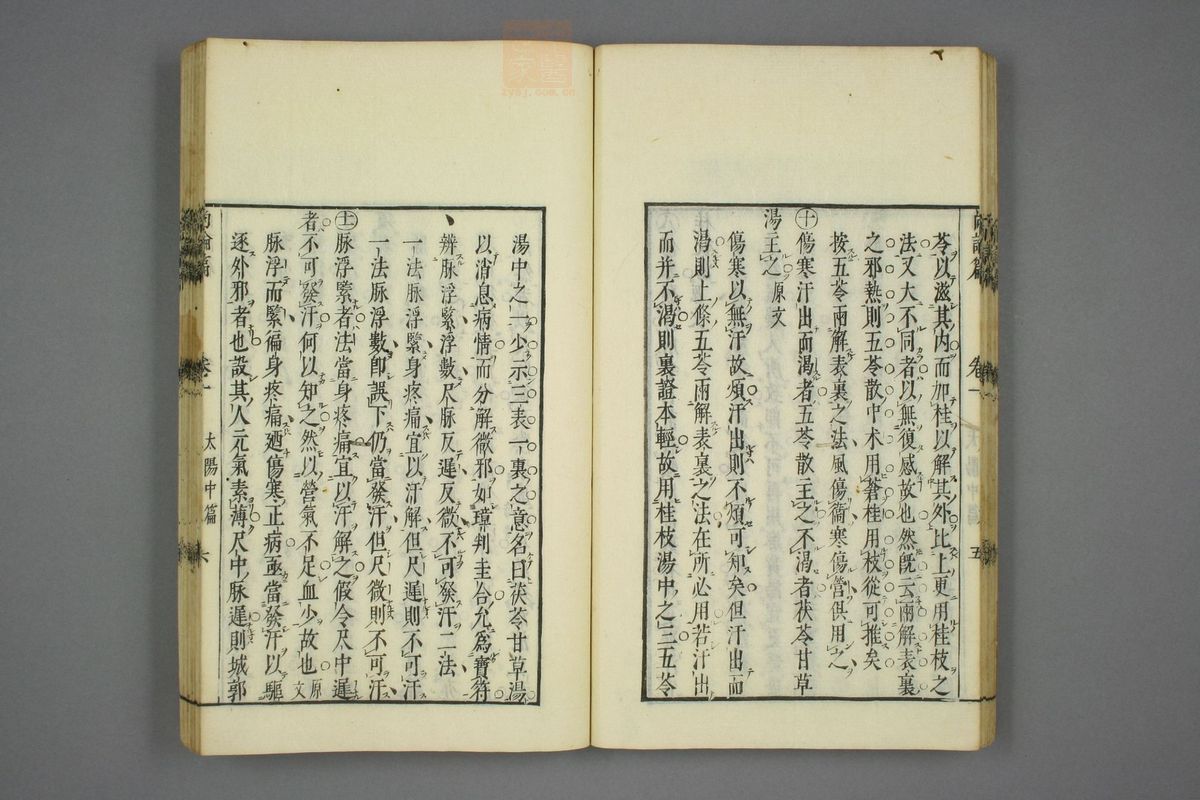 苓以滋其内而加桂以解其外比上更用桂枝之
法又大不同者以無復感故也然既云兩解表裏
之邪熱則五苓散中术用蒼桂用枝從可推矣
按五苓兩解表裏之法風傷衞寒傷營俱用之
㊉傷寒汗出而渴者五苓散主之不渴者茯苓甘草
湯主之原文
傷寒以無汗故煩汗出則不煩可知矣但汗出而
渴則上條五苓兩解表裏之法在所必用若汗出
而并不渴則裏證本輕故用桂枝湯中之三五苓
卷一
太陽中篇
五
湯中之一少示三表一裏之意名曰茯苓甘草湯
以消息病情而分解微邪如璋判圭合允爲寶符
辨脉浮緊浮數尺脉反遲反微不可發汗二法
一法脉浮緊身疼痛宜以汗解但尺遲則不可汗
一法脉浮數即誤下仍當發汗但尺微則不可汗
⑪脉浮緊者法當身疼痛宜以汗解之假令尺中遲
者不可發汗何以知之然以營氣不足血少故也原文
脉浮而緊徧身疼痛廼傷寒正病亟當發汗以驅
逐外邪者也設其人元氣素薄尺中脉遲則城郭
尚論篇
卷一
太陽中篇
六
zysj.com.cn